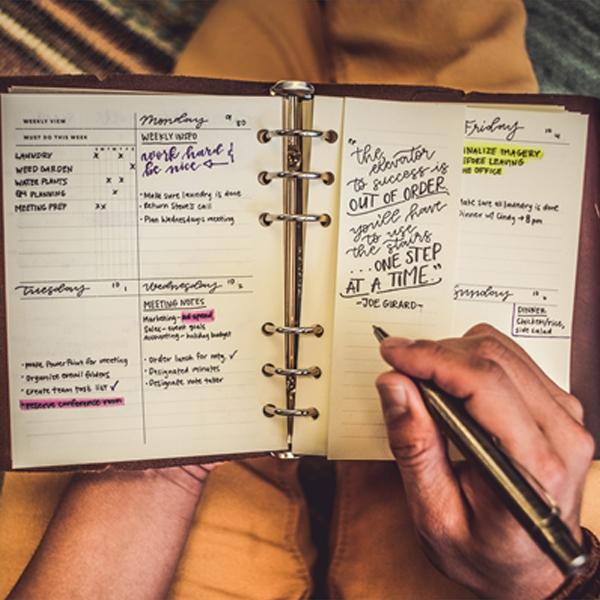 WEEKLY VIEW
MUST DO THIS WEEK
LAUNDRY
WEED GARDEN
WATER PLANTS
PM PLANNING
MEETING PREP
Monday 9 30
WEEKLY INSPO
work hard &
be nice
• Make sure laundry is done
• Return Steve's call
• Plan Wednesday's meeting
Tuesday 10 1
• Make PowerPoint for meeting
• Organize email folders
• Create team task list ✓
• reserve conference room
Wednesday 10 2
MEETING NOTES
Marketing - ad spend
Sales - event goals
Accounting - holiday budget
• Order lunch for mtg. ✓
• Designated minutes
• Designate note taker
"the
elevator
to success is
OUT OF ORDER.
you'll have
to use
the stairs
...ONE STEP
AT A TIME."
-JOE GIRARD-
Friday 10 4
INALIZE IMAGERY
EFORE LEAVING
HE OFFICE
ake sure all laundry is done
Dinner w/ Cindy → 8pm
DINNER:
Chicken/rice,
side salad